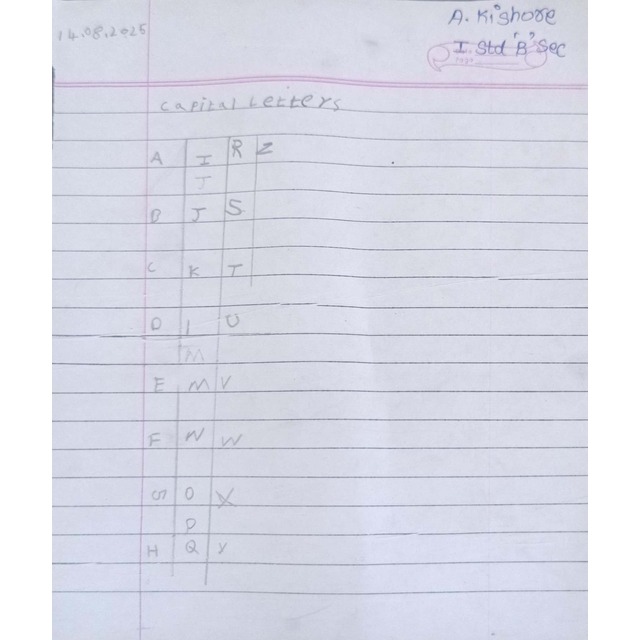 14.08.2025
A. Kishore
I Std 'B' Sec
Capital Letters
A I R Z
J
B J S
C K T
D l U
M
E M V
F N W
G O X
P
H Q Y